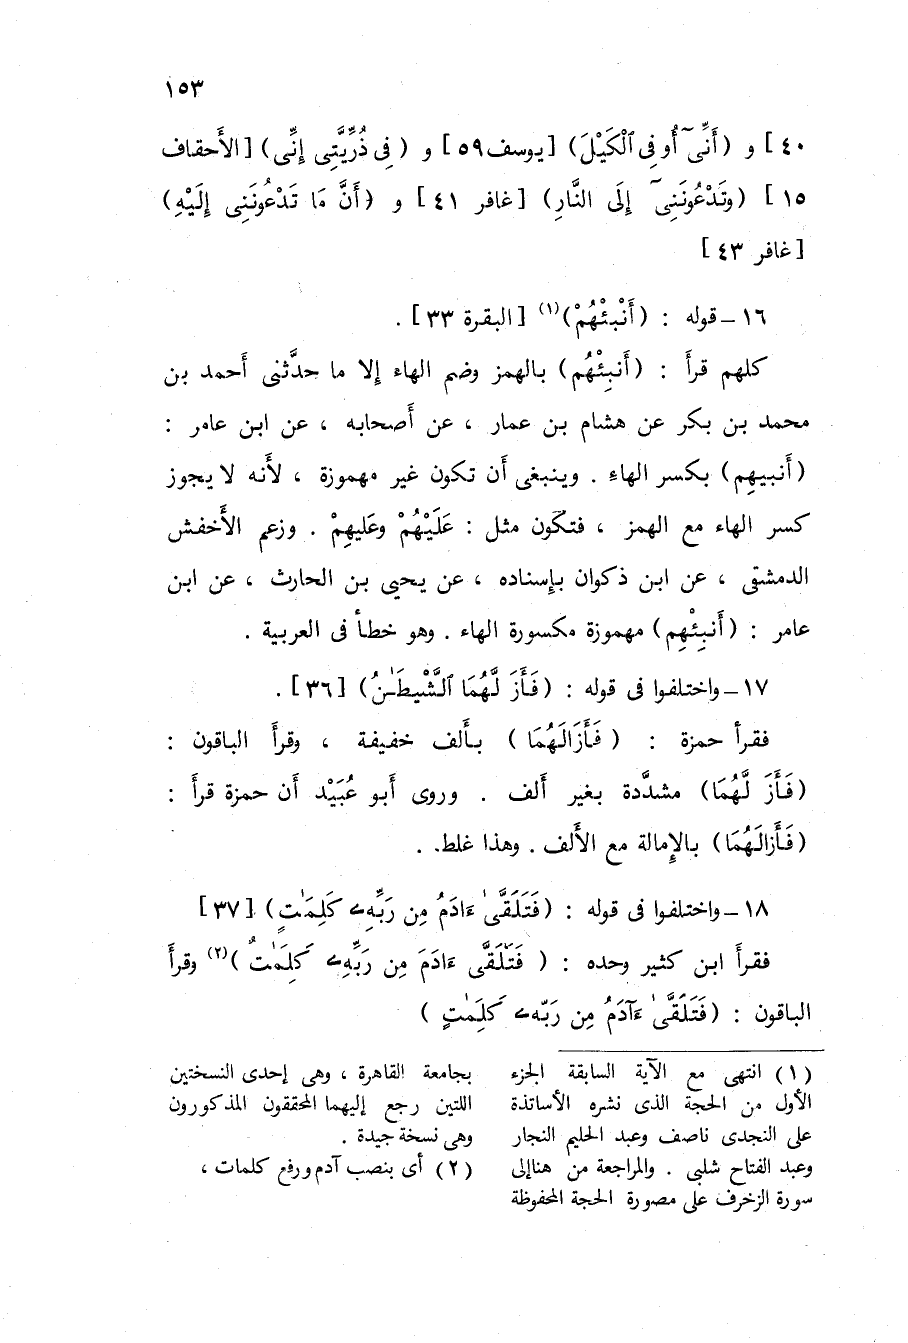 ١٥٣
٤٠] و (أَنِّىٓ أُوفِى ٱلْكَيْلَ) [يوسف ٥٩] و (فِى ذُرِّيَّتِى إِنِّى) [الأَحقاف
١٥] (وتَدْعُونَنِىٓ إِلَى النَّارِ) [غافر ٤١] و (أَنَّ مَا تَدْعُونَنِى إِلَيْهِ)
[غافر ٤٣]
١٦ – قوله : (أَنْبِئْهُمْ)(١) [البقرة ٣٣] .
كلهم قرأَ : (أَنبِئْهُم) بالهمز وضم الهاء إِلا ما حدَّثنى أَحمد بن
محمد بن بكر عن هشام بن عمار ، عن أَصحابه ، عن ابن عامر :
(أَنبيهِم) بكسر الهاءِ . وينبغى أَن تكون غير مهموزة ، لأَنه لا يجوز
كسر الهاء مع الهمز ، فتكون مثل : عَلَيْهُمْ وعَليهِمْ . وزعم الأَخفش
الدمشقى ، عن ابن ذكوان بإِسناده ، عن يحيى بن الحارث ، عن ابن
عامر : (أَنبِئْهِم) مهموزة مكسورة الهاء . وهو خطأ فى العربية .
١٧ – واختلفوا فى قوله : (فَأَزَ لَّهُمَا ٱلشَّيْطَـٰنُ) [٣٦] .
فقرأ حمزة : (فَأَزَالَهُمَا) بألف خفيفة ، وقرأَ الباقون :
(فَأَزَ لَّهُمَا) مشدَّدة بغير أَلف . وروى أَبو عُبَيْد أَن حمزة قرأَ :
(فَأَزالَهُمَا) بالإِمالة مع الأَلف . وهذا غلط .
١٨ – واختلفوا فى قوله : (فَتَلَقَّىٰ ءَادَمُ مِن رَبِّهِۦ كَلِمَـٰتٍ) [٣٧]
فقرأَ ابن كثير وحده : ( فَتَلَقَّى ءَادَمَ مِن رَبِّهِۦ كَلِمَـٰتٌ )(٢) وقرأَ
الباقون : (فَتَلَقَّىٰ ءَآدَمُ مِن رَبّهِۦ كَلِمَـٰتٍ )
(١) انتهى مع الآية السابقة الجزء
الأول من الحجة الذى نشره الأساتذة
على النجدى ناصف وعبد الحليم النجار
وعبد الفتاح شلبى . والمراجعة من هنا إلى
سورة الزخرف على مصورة الحجة المحفوظة
بجامعة القاهرة ، وهى إحدى النسختين
اللتين رجع إليهما المحققون المذكورون
وهى نسخة جيدة .
(٢) أى بنصب آدم ورفع كلمات ،